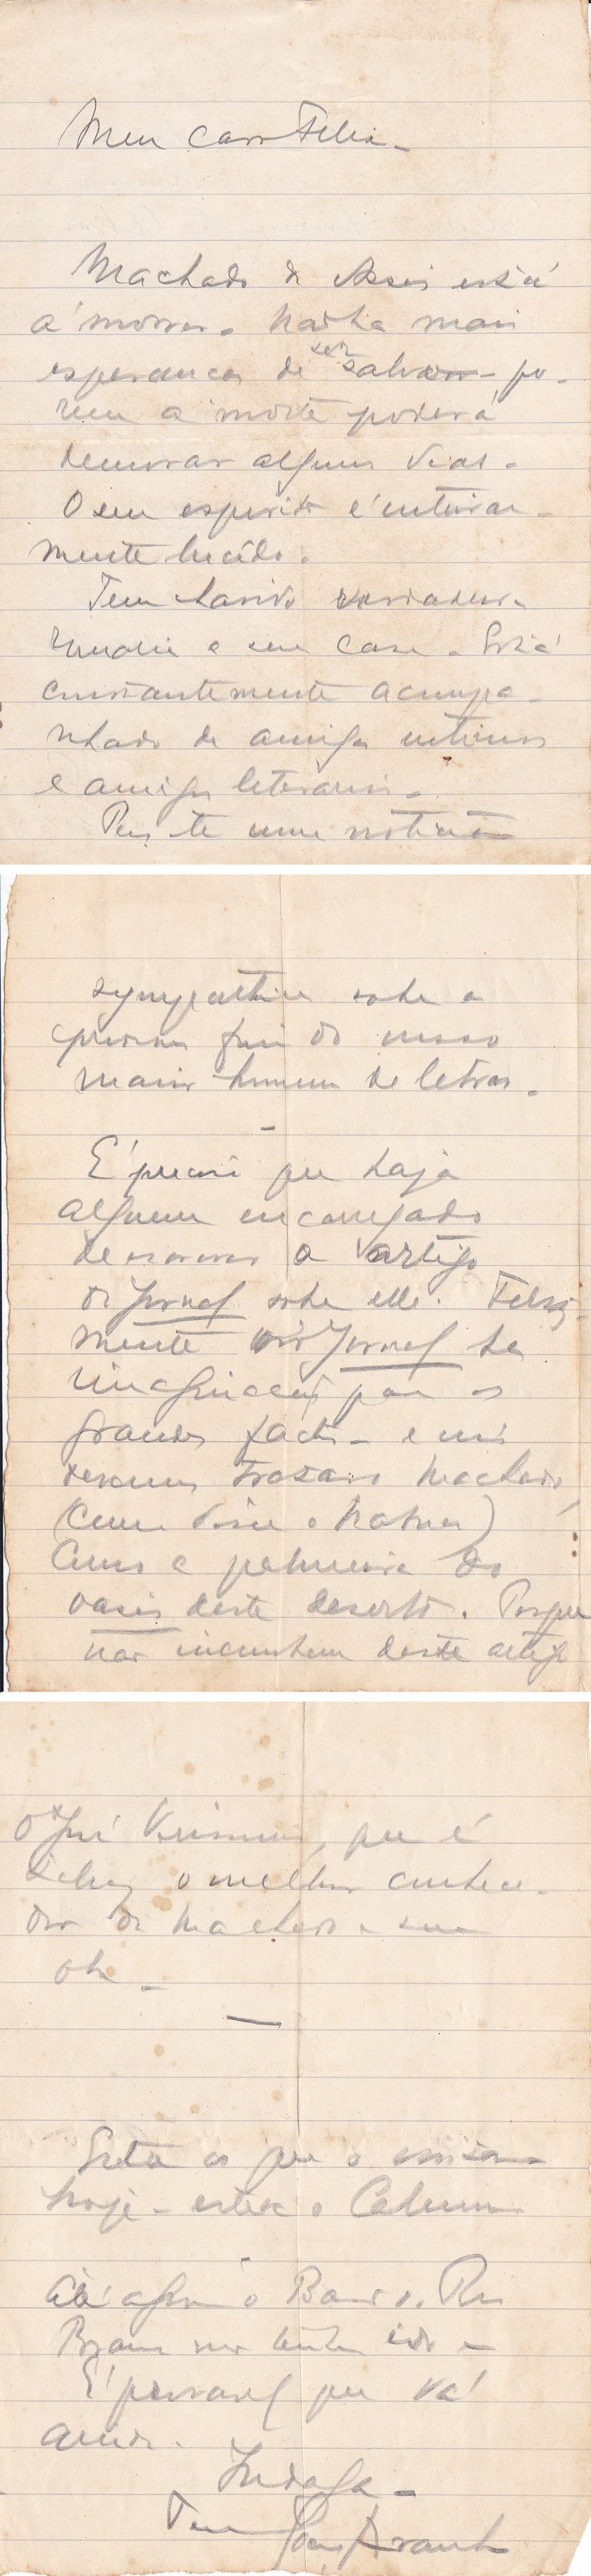 Meu caro Felix -
Machado de Assis está
á morrer. Não ha mais
esperanças de ser salvo - po-
rem a morte poderá
demorar alguns dias.
O seu espirito é inteira-
mente lucido.
Tem havido
a sua casa. Está
constantemente acompa-
nhado de amigos intimos
e amigos literarios.
uma noticia
sympathica sobre o
proximo fim do nosso
maior homem de letras.
-
E' preciso que haja
alguem encarregado
de escrever o artigo
do Jornal sobre elle. Feliz-
mente no Jornal ha
para os
grandes factos - e nós
devemos Machado
(com o Nabuco)
como a palmeira do
oasis deste deserto. Porque
não incumbem deste artigo
o José Verissimo, que é
talvez o melhor conhece-
dor de Machado e sua
obra -
—
que o
hoje - esteve o
Até agora o Barão do Rio
Branco não tinha ido -
E' provavel que vá
ainda.
Indaga -
Teu Graça Aranha